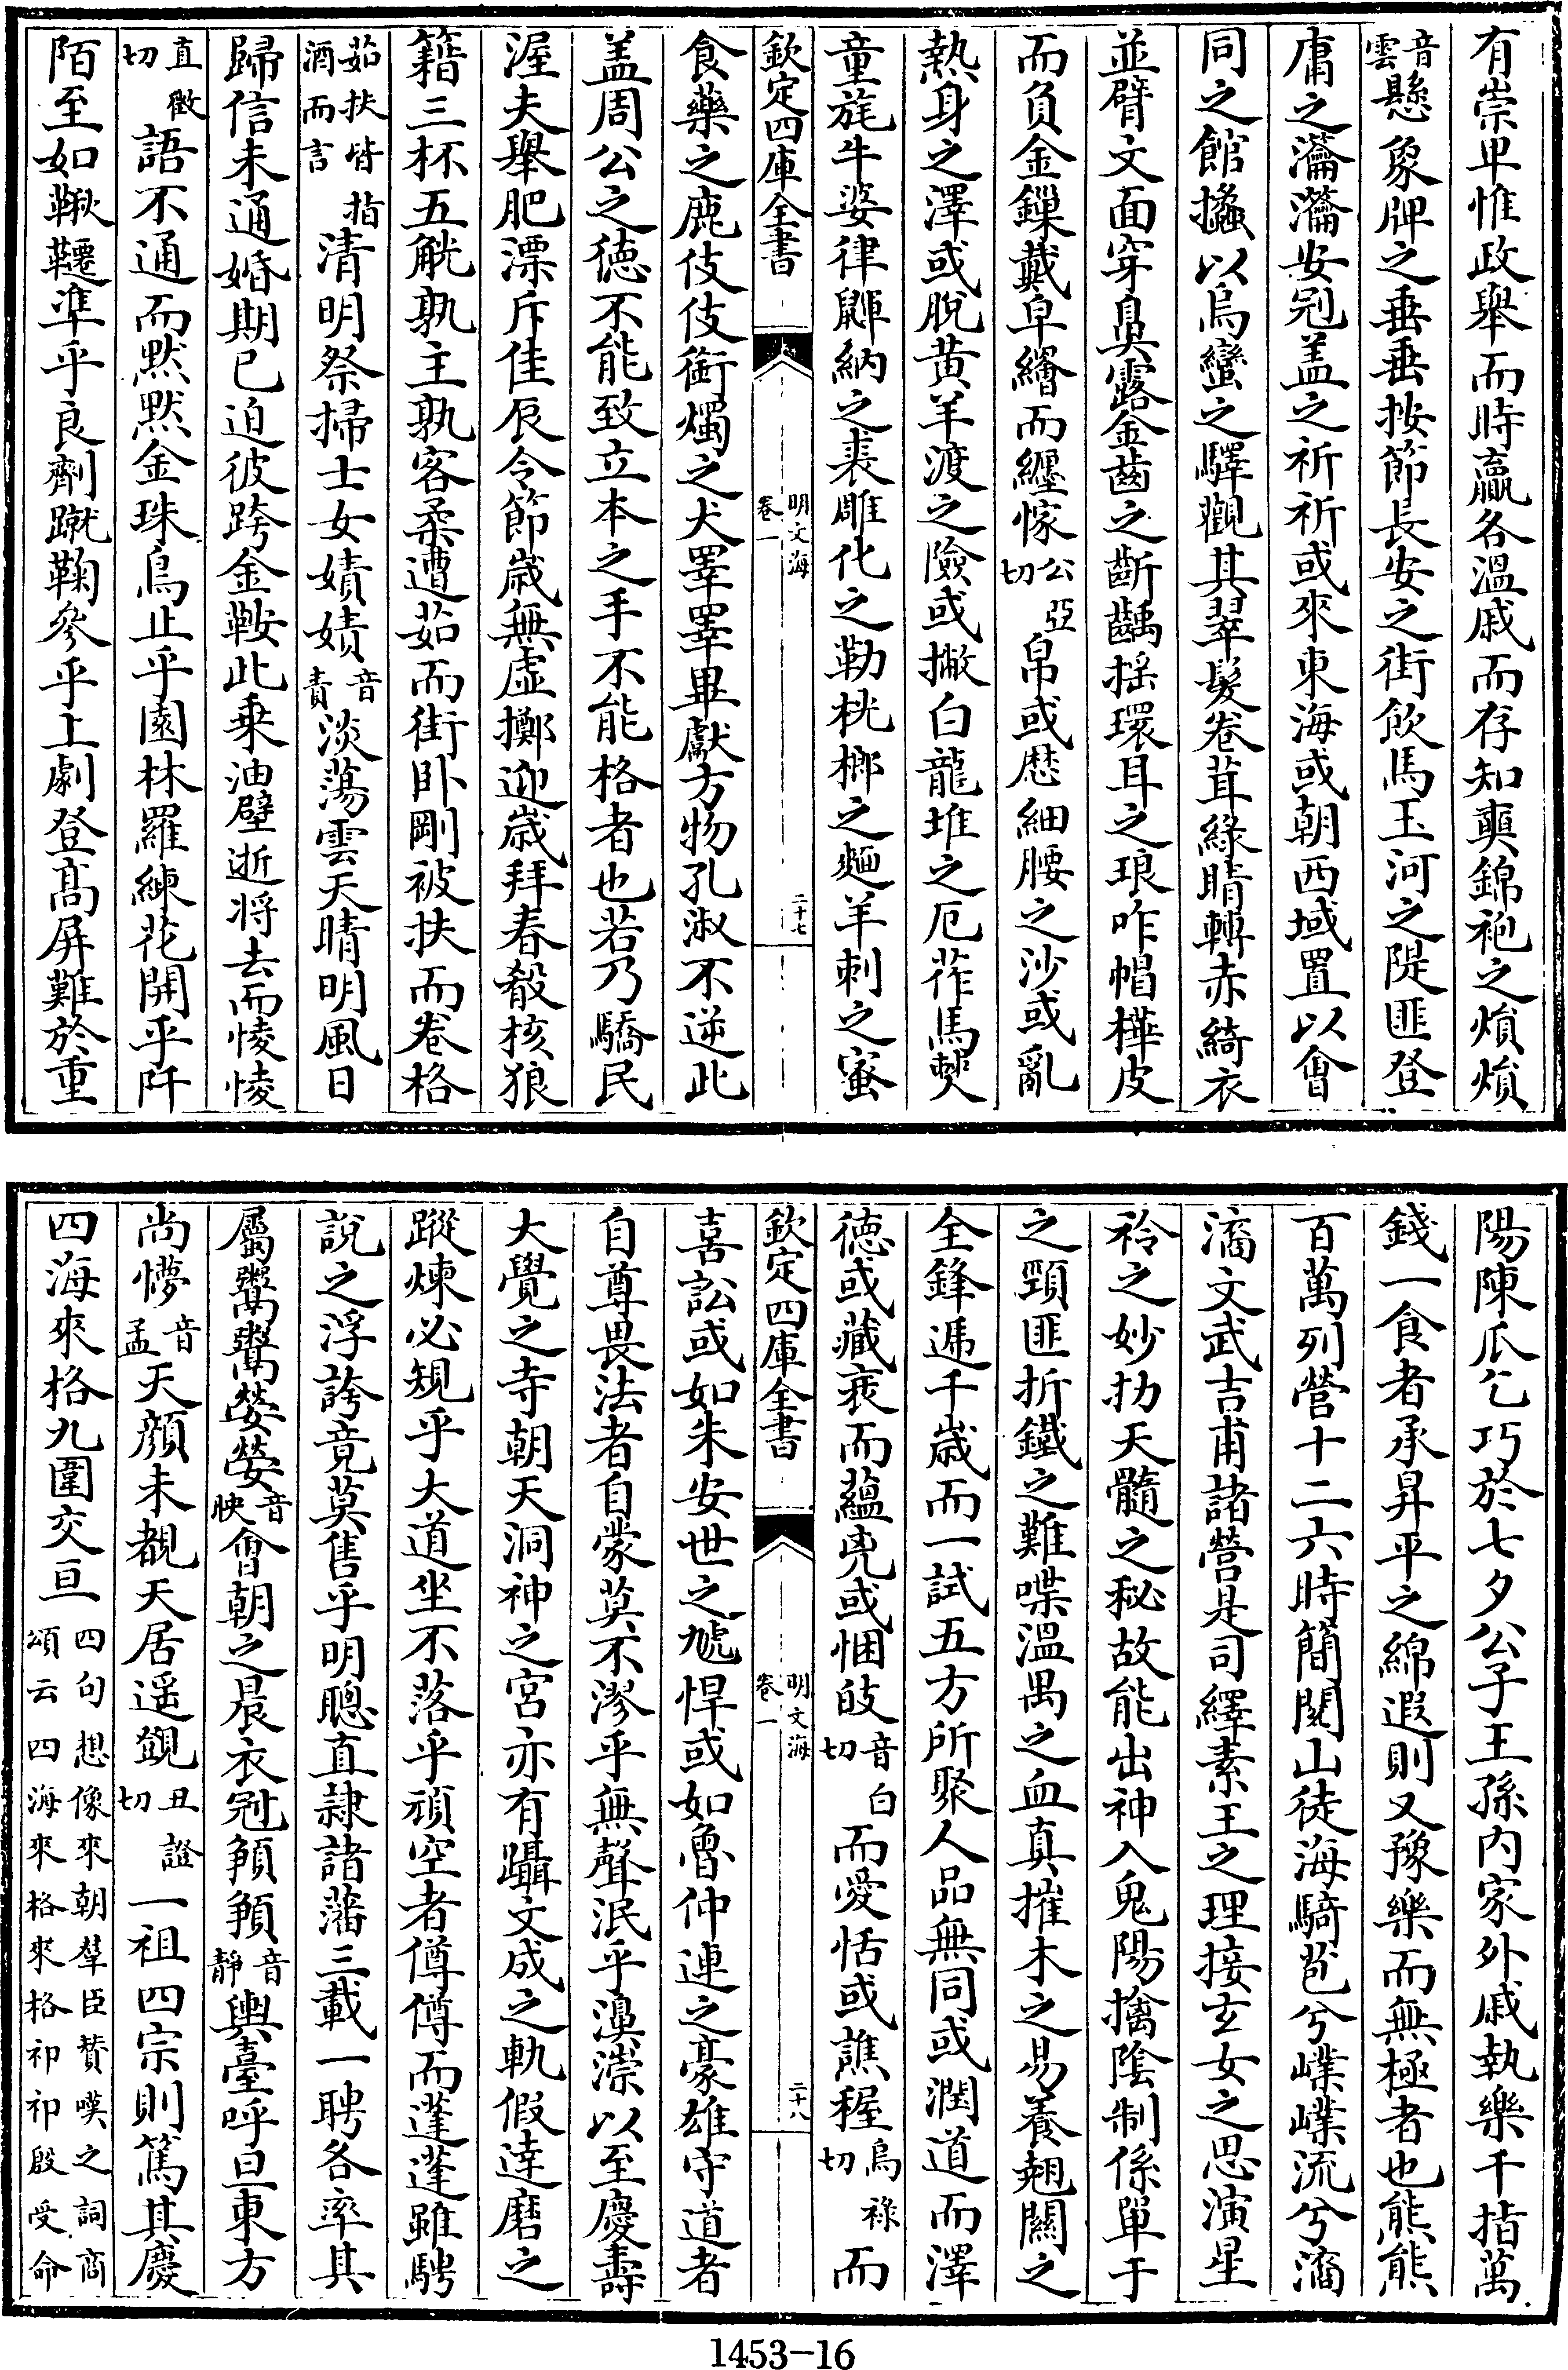 有崇卑惟政舉而時贏各溫戚而存知奭錦袍之熉熉
音雲懸象牌之垂垂按節長安之街飲馬玉河之隄匪登
庸之瀹瀹安冠盖之祈祈或來東海或朝西域置以會
同之館攝以烏蠻之驛觀其翠髮卷茸綠睛轉赤綺衣
並臂文面穿鼻露金齒之齗齲揺環耳之琅咋帽樺皮
而負金鏁戴皁繒而纒㡓公亞切帛或歴細腰之沙或亂
熱身之澤或脫黄羊渡之險或撇白龍堆之厄葄馬㸕
童旄牛娑律鼲納之裘雕化之勒桄榔之麵羊刺之蜜
欽定四庫全書
明文海
卷一
二十七
食藥之鹿伎伎銜燭之犬睪睪畢獻方物孔淑不逆此
盖周公之徳不能致立本之手不能格者也若乃驕民
渥夫舉肥漂斥佳辰令節嵗無虛擲迎嵗拜春殽核狼
籍三杯五觥孰主孰客柔遭茹而街卧剛被扶而巷格
茹扶皆指酒而言清明祭掃士女嫧嫧音責淡蕩雲天晴明風日
歸信未通婚期已迫彼跨金鞍此乗油壁逝将去而㥄㥄
直徵切語不通而黙黙金珠鳥止乎園林羅練花開乎阡
陌至如鞦韆凖乎良劑蹴鞠參乎上劇登髙屏難於重
陽陳爪乞巧於七夕公子王孫内家外戚執樂千指萬
錢一食者承昇平之綿遐則又豫樂而無極者也熊熊
百萬列營十二六時簡閱山徒海騎苞兮嶫嶫流兮潏
潏文武吉甫諸營是司繹素王之理接玄女之思演星
衿之妙扐天髓之秘故能出神入鬼陽擒隂制係單于
之頸匪折鐡之難喋溫禺之血真摧木之易養翹關之
全鋒遞千嵗而一試五方所聚人品無同或潤道而澤
徳或藏衷而藴兇或悃㿟音白切而愛恬或譙䅧烏祿切而
欽定四庫全書
明文海
卷一
二十八
喜訟或如朱安世之虓悍或如魯仲連之豪雄守道者
自尊畏法者自蒙莫不漻乎無聲泯乎澒濴以至慶壽
大覺之寺朝天洞神之宮亦有躡文成之軌假逹磨之
蹤煉必規乎大道坐不落乎頑空者僔僔而蓬蓬雖騁
說之浮誇竟莫售乎明聰直隷諸藩三載一聘各率其
屬鬻鬻䓨䓨音映會朝之晨衣冠䫆䫆音靜輿臺呼旦東方
尚懜音孟天顔未覩天居遥覴丑證切一祖四宗則篤其慶
四海來格九圍交亘四句想像來朝羣臣賛嘆之詞商頌云四海來格來格祁祁殷受命
1453-16